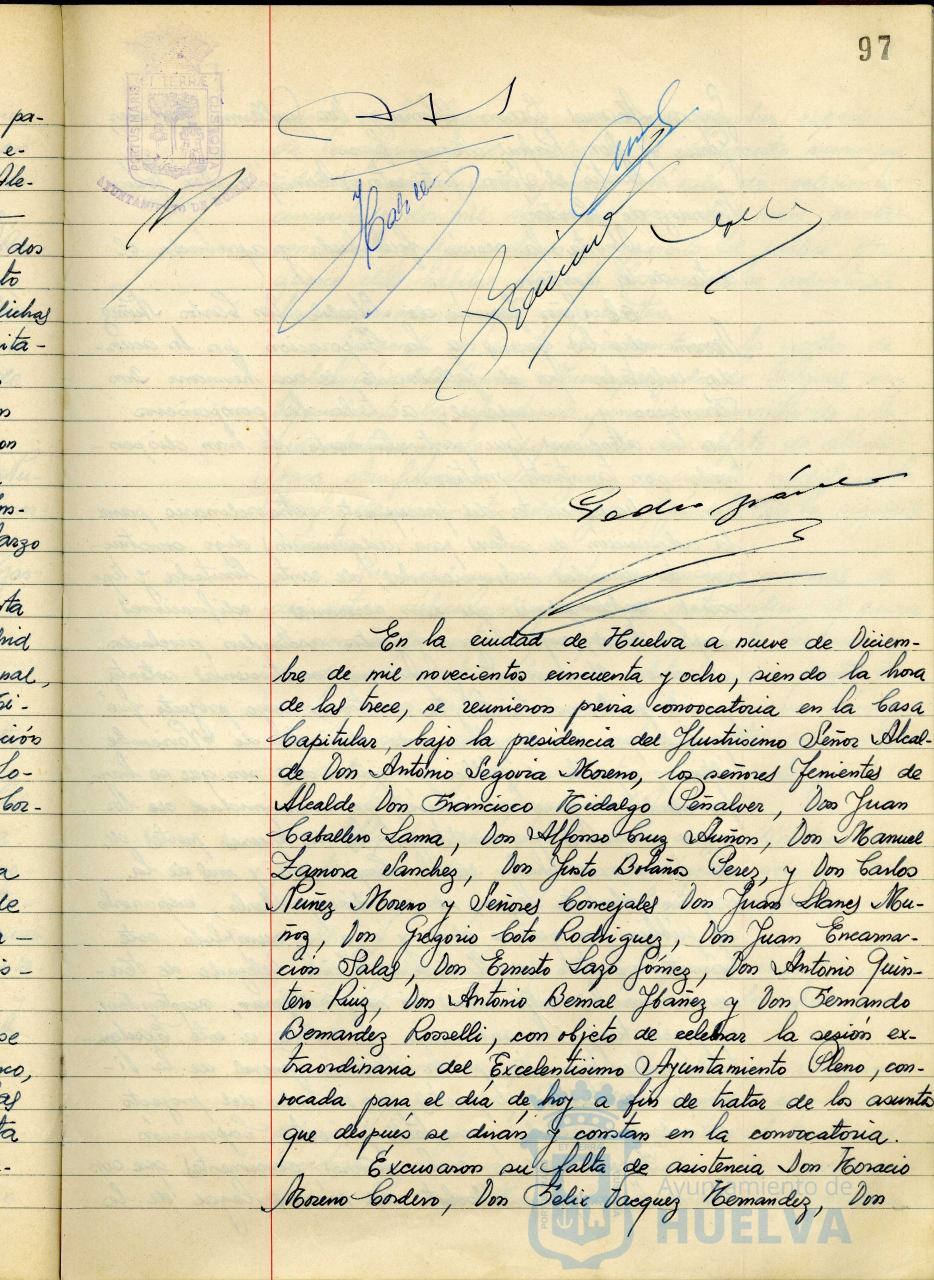 97
PORTUS MARIS ET TERRAE CUSTODIA
AYUNTAMIENTO DE HUELVA
pa-
e-
Ale-
dos
to
dichas
ita-
on
arzo
ta
rid
nal,
si-
ción
Lo-
Cor-
a
de
is-
se
co,
as
ta
En la ciudad de Huelva a nueve de Diciem-
bre de mil novecientos cincuenta y ocho, siendo la hora
de las trece, se reunieron previa convocatoria en la Casa
Capitular, bajo la presidencia del Ilustrisimo Señor Alcal-
de Don Antonio Segovia Moreno, los señores Tenientes de
Alcalde Don Francisco Hidalgo Peñalver, Don Juan
Caballero Lama, Don Alfonso Cruz Auñon, Don Manuel
Zamora Sanchez, Don Justo Bolaños Perez, y Don Carlos
Núñez Moreno y Señores Concejales Don Juan Llanes Mu-
ñoz, Don Gregorio Coto Rodriguez, Don Juan Encarna-
ción Salas, Don Ernesto Lazo Gómez, Don Antonio Quin-
tero Ruiz, Don Antonio Bernal Ibáñez y Don Fernando
Bernardez Rosselli, con objeto de celebrar la sesión ex-
traordinaria del Excelentisimo Ayuntamiento Pleno, con-
vocada para el día de hoy a fin de tratar de los asuntos
que después se dirán y constan en la convocatoria.
Excusaron su falta de asistencia Don Horacio
Moreno Cordero, Don Felix Vacquez Hernandez, Don
Ayuntamiento de
HUELVA